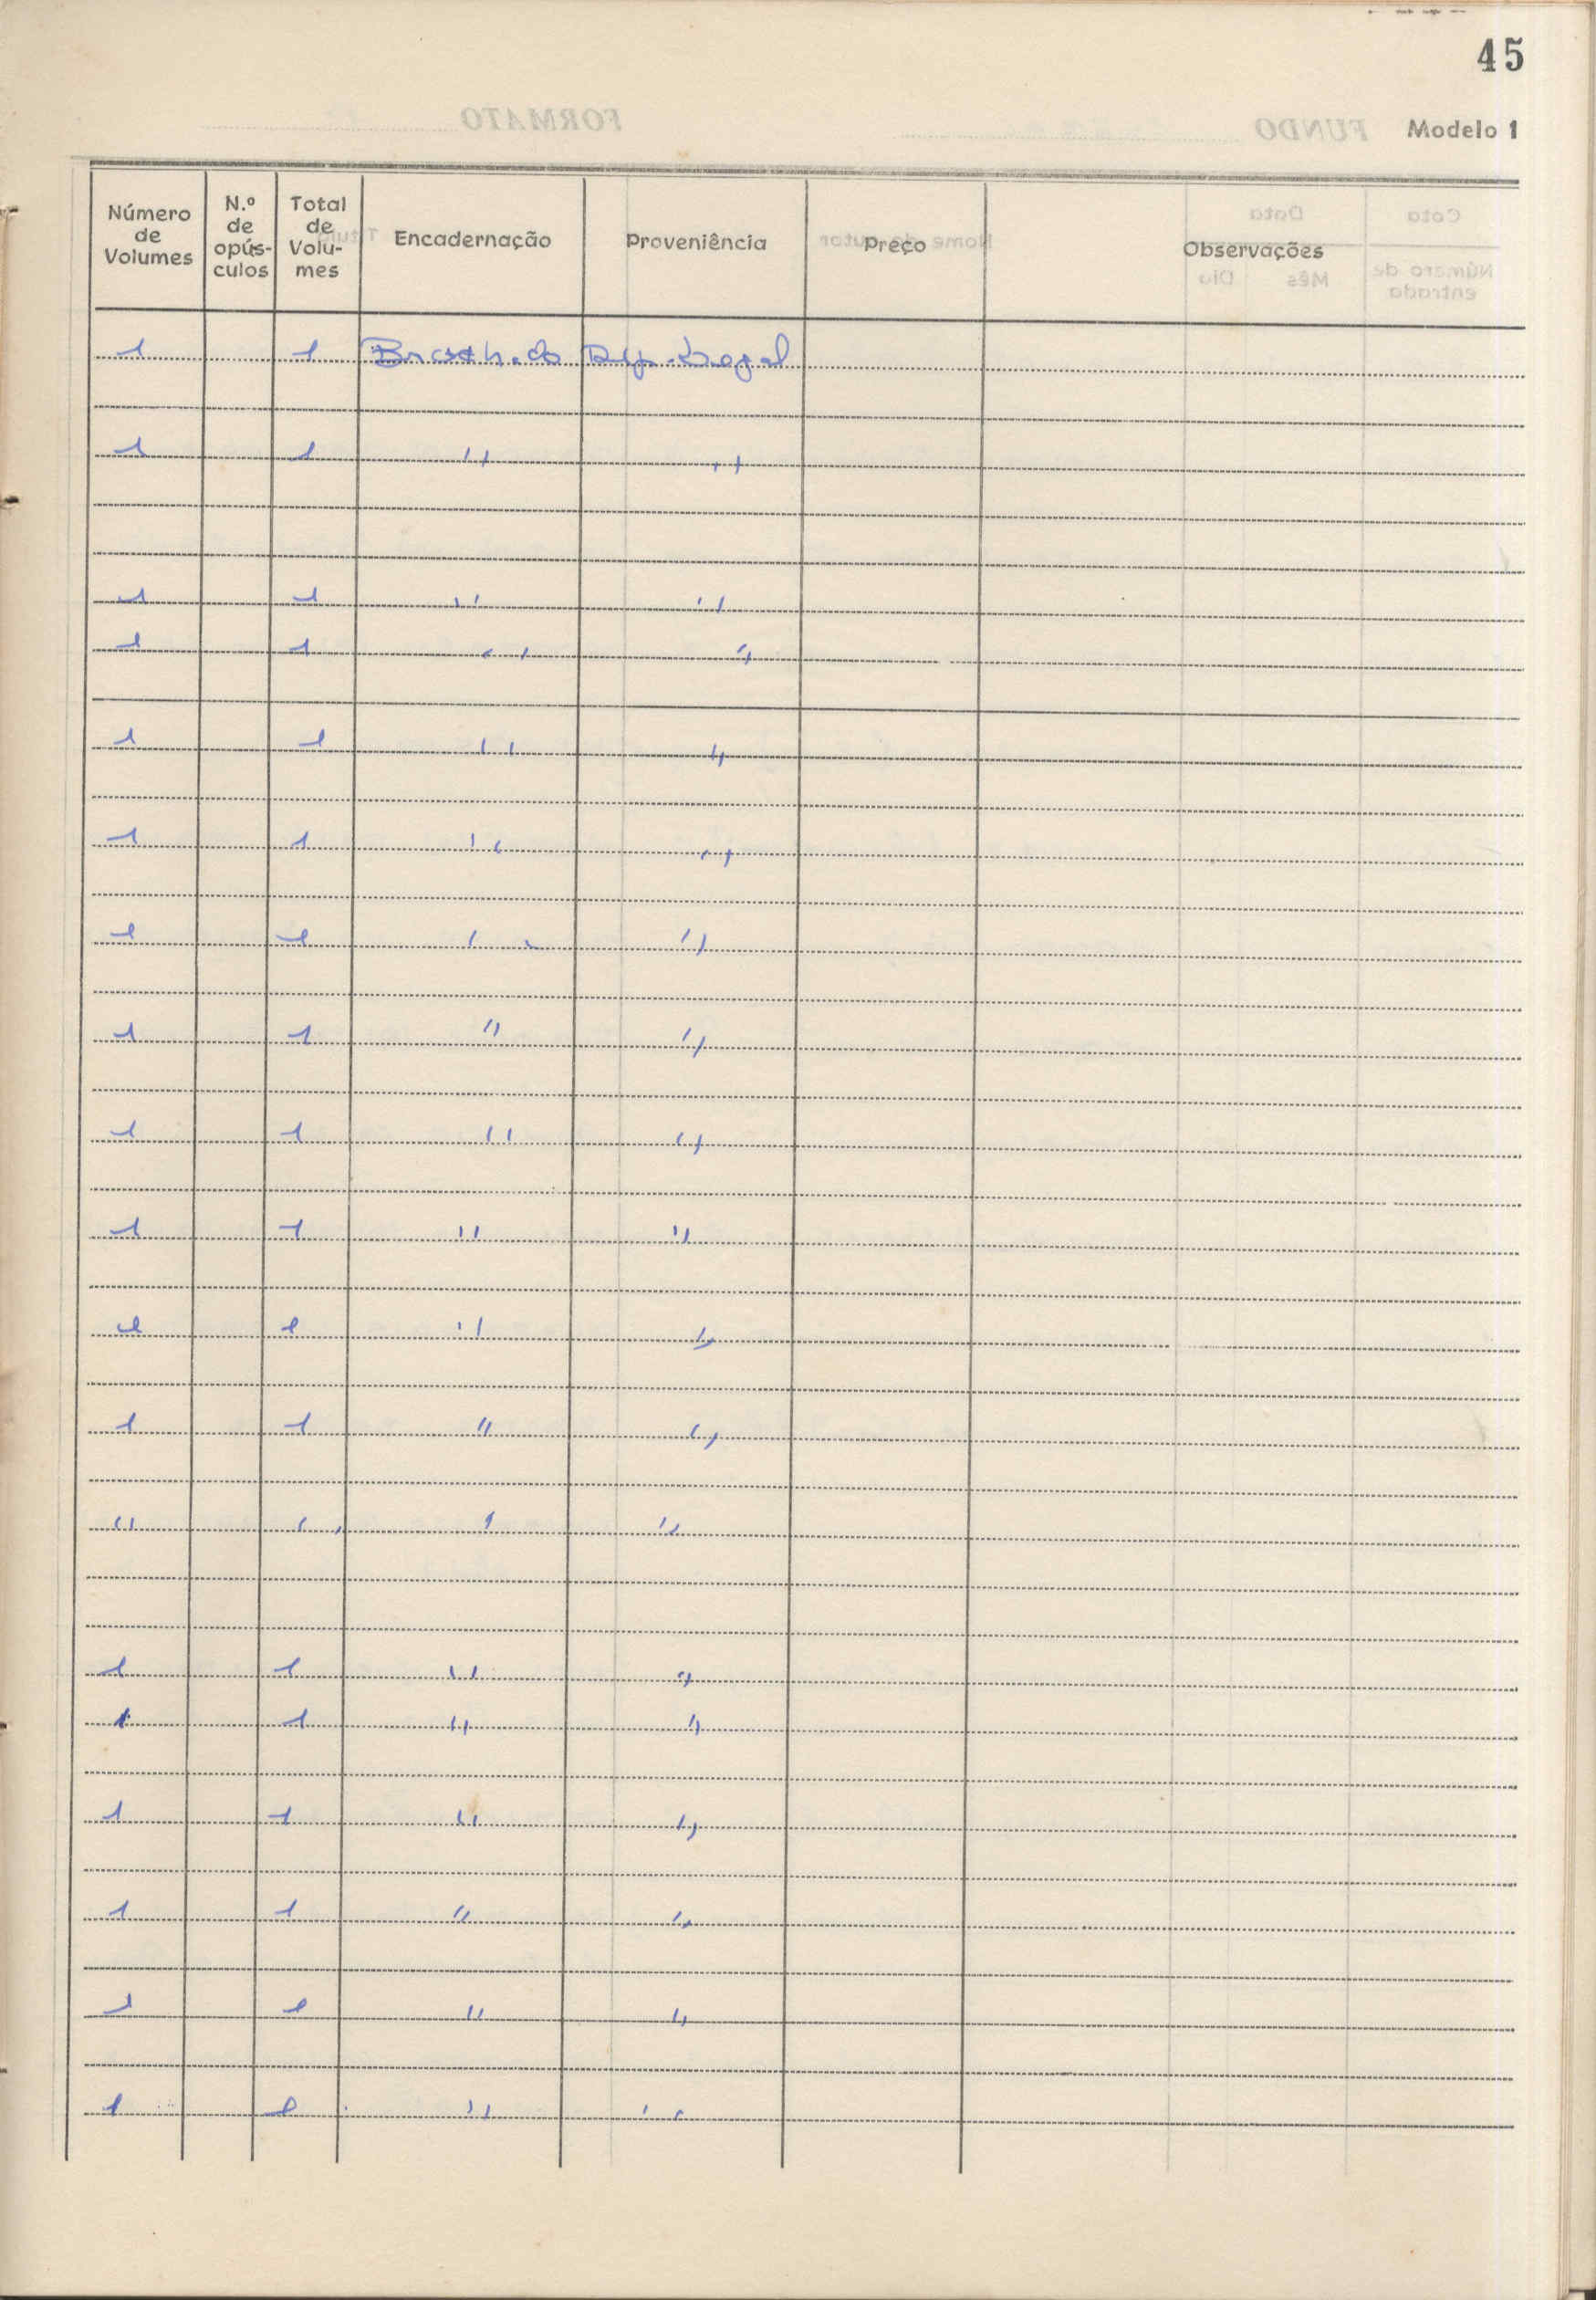 45
Modelo 1
Número de Volumes N.º de opús-culos Total de Volu-mes Encadernação Proveniência Preço Observações
1 1 Dep. Legal
1 1 " "
1 1 " "
1 1 " "
1 1 " "
1 1 " "
1 1 " "
1 1 " "
1 1 " "
1 1 " "
1 1 " "
1 1 " "
" " " "
1 1 " "
1 1 " "
1 1 " "
1 1 " "
1 1 " "
1 1 " "